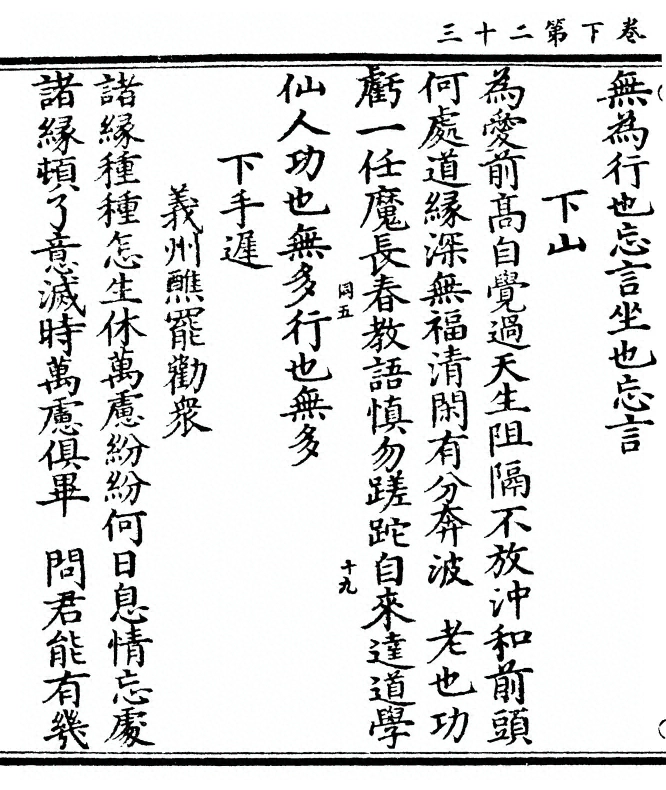 卷下第二十三
無為行也忘言坐也忘言
下山
為愛前高自覺過天生阻隔不放沖和前頭
何處道緣深無福清閑有分奔波　老也功
虧一任魔長春教語慎勿蹉跎自來達道學
同五
十九
仙人功也無多行也無多
下手遲
義州醮罷勸衆
諸緣種種怎生休萬慮紛紛何日息情忘處
諸緣頓了意滅時萬慮俱畢　問君能有幾